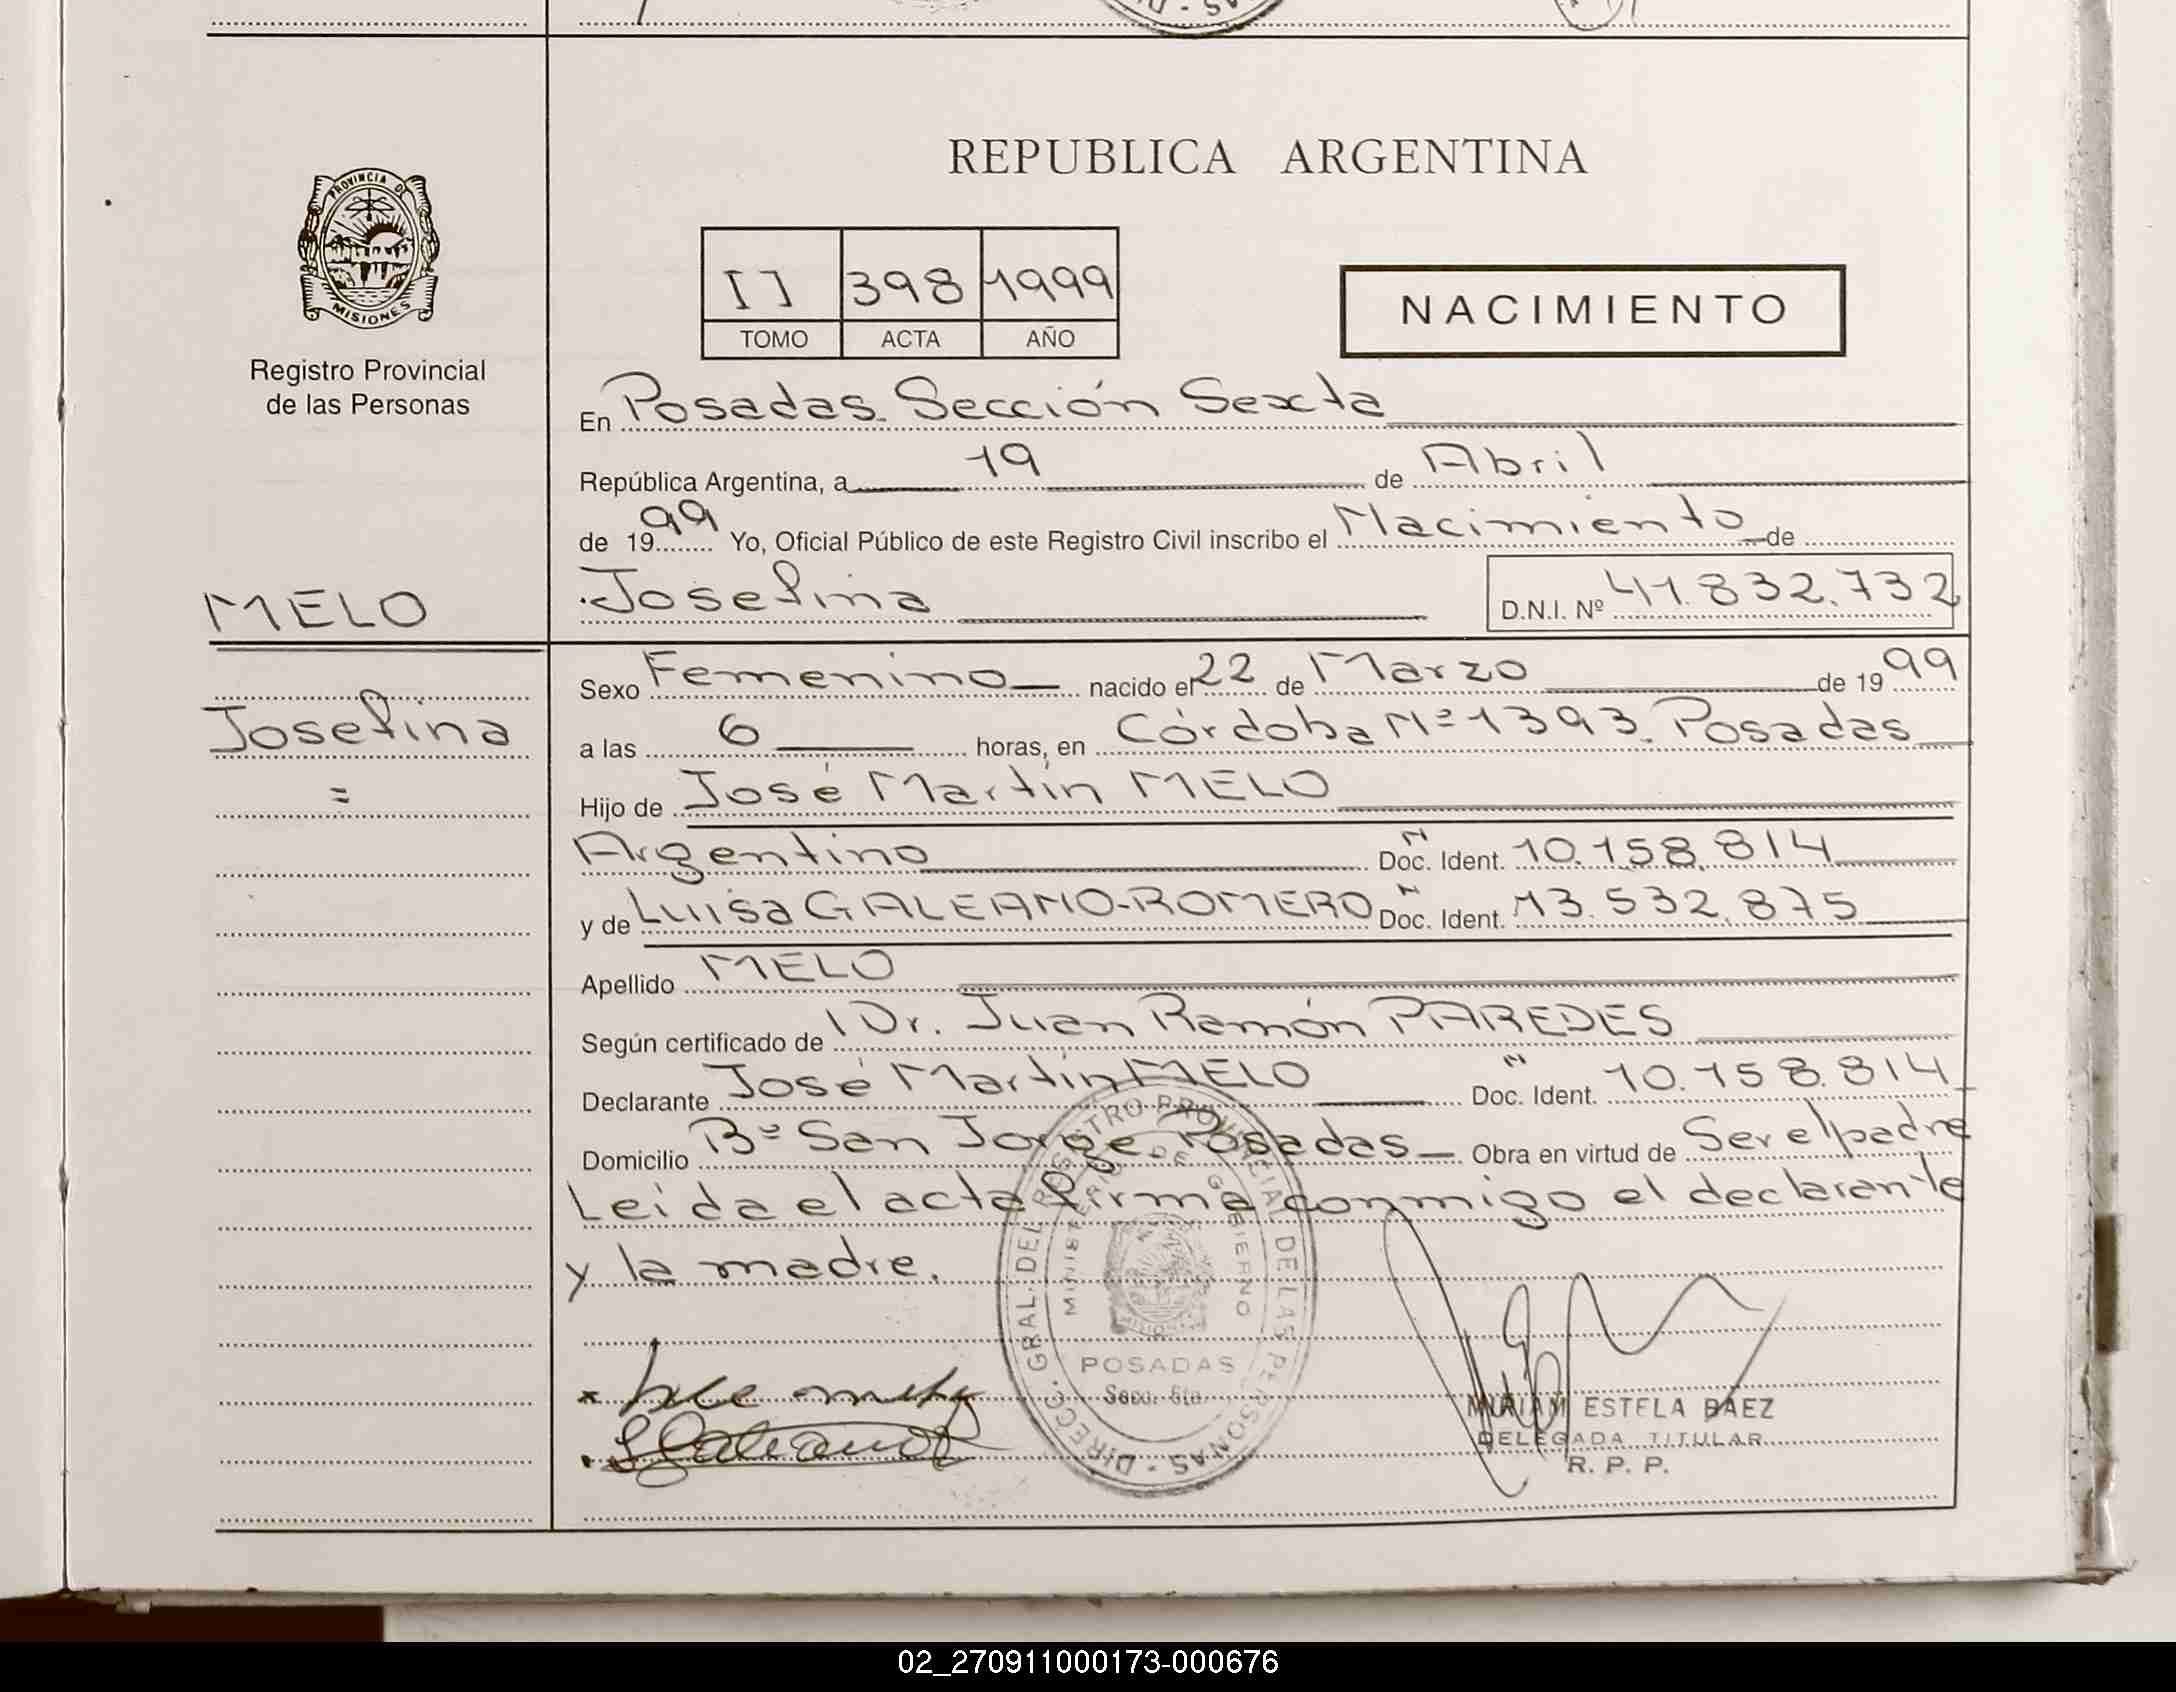 REPUBLICA ARGENTINA
PROVINCIA DE
MISIONES
Registro Provincial
de las Personas
II 398 1999
TOMO ACTA AÑO
NACIMIENTO
En Posadas. Sección Sexta
República Argentina, a 19 de Abril
de 1999 Yo, Oficial Público de este Registro Civil inscribo el Nacimiento de
MELO
Josefina D.N.I. Nº 41.832.732
Josefina
=
Sexo Femenino nacido el 22 de Marzo de 1999
a las 6 horas, en Córdoba Nº 1393. Posadas
Hijo de José Martín MELO
Argentino Doc. Ident. 10.158.814
y de Luisa GALEANO-ROMERO Doc. Ident. 13.532.875
Apellido MELO
Según certificado de Dr. Juan Ramón PAREDES
Declarante José Martín MELO Doc. Ident. 10.158.814
Domicilio Bº San Jorge. Posadas Obra en virtud de Ser el padre
Leída el acta firma conmigo el declarante
y la madre.
DIRECC. GRAL. DEL REGISTRO PROVINCIAL DE LAS PERSONAS
MINISTERIO DE GOBIERNO
POSADAS
Secc. 6ta.
MIRIAM ESTELA BAEZ
DELEGADA TITULAR
R. P. P.
02_270911000173-000676